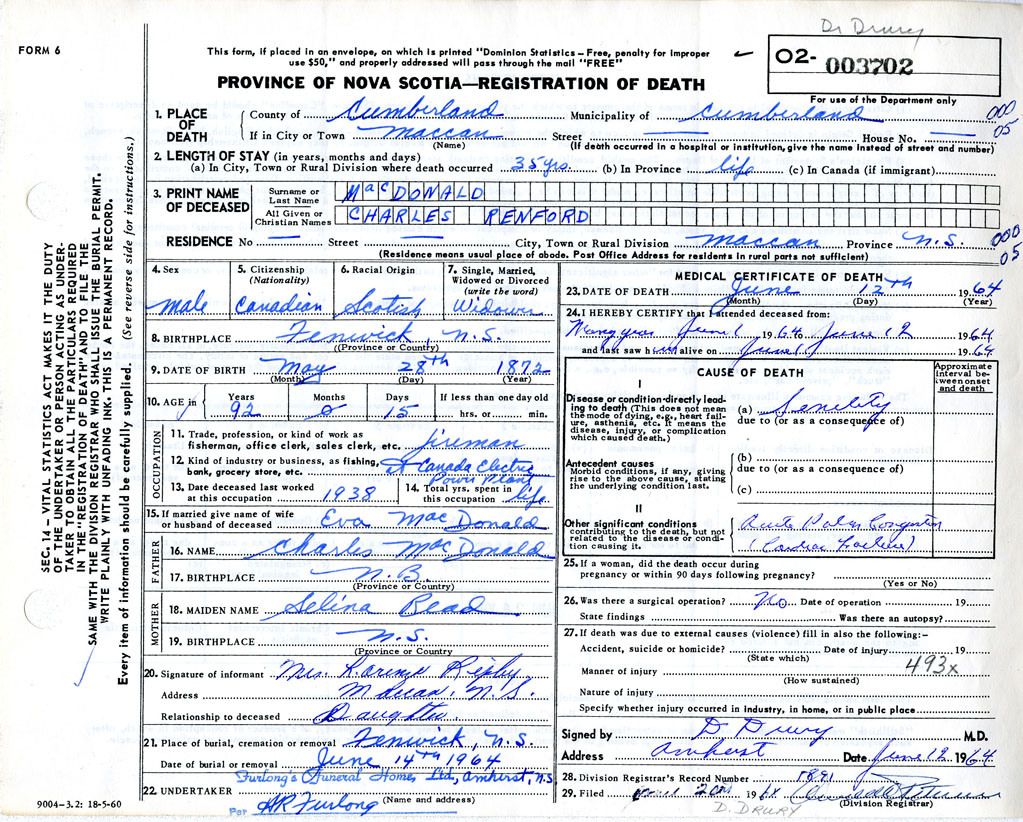 Dr Drury
FORM 6
This form, if placed in an envelope, on which is printed "Dominion Statistics – Free, penalty for improper
use $50," and properly addressed will pass through the mail "FREE"
O2- 003702
PROVINCE OF NOVA SCOTIA—REGISTRATION OF DEATH
For use of the Department only
1. PLACE OF DEATH
County of Cumberland Municipality of Cumberland 000
If in City or Town Maccan Street — House No. — 05
(Name) (If death occurred in a hospital or institution, give the name instead of street and number)
2. LENGTH OF STAY (in years, months and days)
(a) In City, Town or Rural Division where death occurred 35 yrs. (b) In Province life (c) In Canada (if immigrant)
3. PRINT NAME OF DECEASED
Surname or Last Name MacDONALD
All Given or Christian Names CHARLES RENFORD
RESIDENCE No — Street — City, Town or Rural Division Maccan Province N.S. 000
(Residence means usual place of abode. Post Office Address for residents in rural parts not sufficient) 05
4. Sex Male
5. Citizenship (Nationality) Canadian
6. Racial Origin Scotish
7. Single, Married, Widowed or Divorced (write the word) Widower
8. BIRTHPLACE Fenwick, N.S.
(Province or Country)
9. DATE OF BIRTH May 28th 1872
(Month) (Day) (Year)
10. AGE in Years 92 Months 0 Days 15 If less than one day old hrs. or min.
OCCUPATION
11. Trade, profession, or kind of work as fisherman, office clerk, sales clerk, etc. fireman
12. Kind of industry or business, as fishing, bank, grocery store, etc. at Canada Electric Power Plant
13. Date deceased last worked at this occupation 1938
14. Total yrs. spent in this occupation life
15. If married give name of wife or husband of deceased Eva MacDonald
FATHER
16. NAME Charles MacDonald
17. BIRTHPLACE N.B.
(Province or Country)
MOTHER
18. MAIDEN NAME Selina Read
19. BIRTHPLACE N.S.
(Province or Country)
20. Signature of informant Mrs.
Address N.S.
Relationship to deceased Daughter
21. Place of burial, cremation or removal Fenwick, N.S.
Date of burial or removal June 14th 1964
Furlong's Funeral Home, Ltd, Amherst, N.S.
22. UNDERTAKER (Name and address)
Per AR Furlong
9004–3.2: 18-5-60
MEDICAL CERTIFICATE OF DEATH
23. DATE OF DEATH June 12th 1964
(Month) (Day) (Year)
24. I HEREBY CERTIFY that I attended deceased from:
Many years June 1 1964 June 12 1964
and last saw him alive on June 11 1964
CAUSE OF DEATH
Approximate interval between onset and death
I
Disease or condition directly leading to death (This does not mean the mode of dying, e.g., heart failure, asthenia, etc. It means the disease, injury, or complication which caused death.)
(a) Senility
due to (or as a consequence of)
Antecedent causes
Morbid conditions, if any, giving rise to the above cause, stating the underlying condition last.
(b)
due to (or as a consequence of)
(c)
II
Other significant conditions contributing to the death, but not related to the disease or condition causing it.
Acute Pulm Congestion
(Cardiac Failure)
25. If a woman, did the death occur during pregnancy or within 90 days following pregnancy?
(Yes or No)
26. Was there a surgical operation? No Date of operation 19
State findings Was there an autopsy?
27. If death was due to external causes (violence) fill in also the following:–
Accident, suicide or homicide? Date of injury 19
(State which)
Manner of injury 493x
(How sustained)
Nature of injury
Specify whether injury occurred in industry, in home, or in public place
Signed by D Drury M.D.
Address Amherst Date June 12 1964
28. Division Registrar's Record Number 1891
29. Filed 19
(Division Registrar)
D. DRURY
SEC. 14 – VITAL STATISTICS ACT MAKES IT THE DUTY
OF THE UNDERTAKER OR PERSON ACTING AS UNDER-
TAKER TO OBTAIN ALL THE PARTICULARS REQUIRED
IN THE "REGISTRATION OF DEATH" AND TO FILE THE
SAME WITH THE DIVISION REGISTRAR WHO SHALL ISSUE THE BURIAL PERMIT.
WRITE PLAINLY WITH UNFADING INK. THIS IS A PERMANENT RECORD.
Every item of information should be carefully supplied. (See reverse side for instructions.)